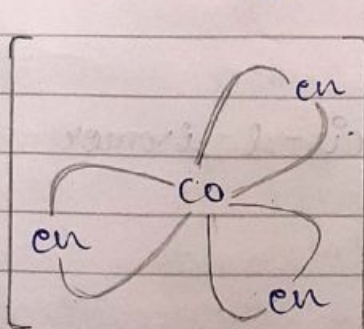 en
Co
en
en